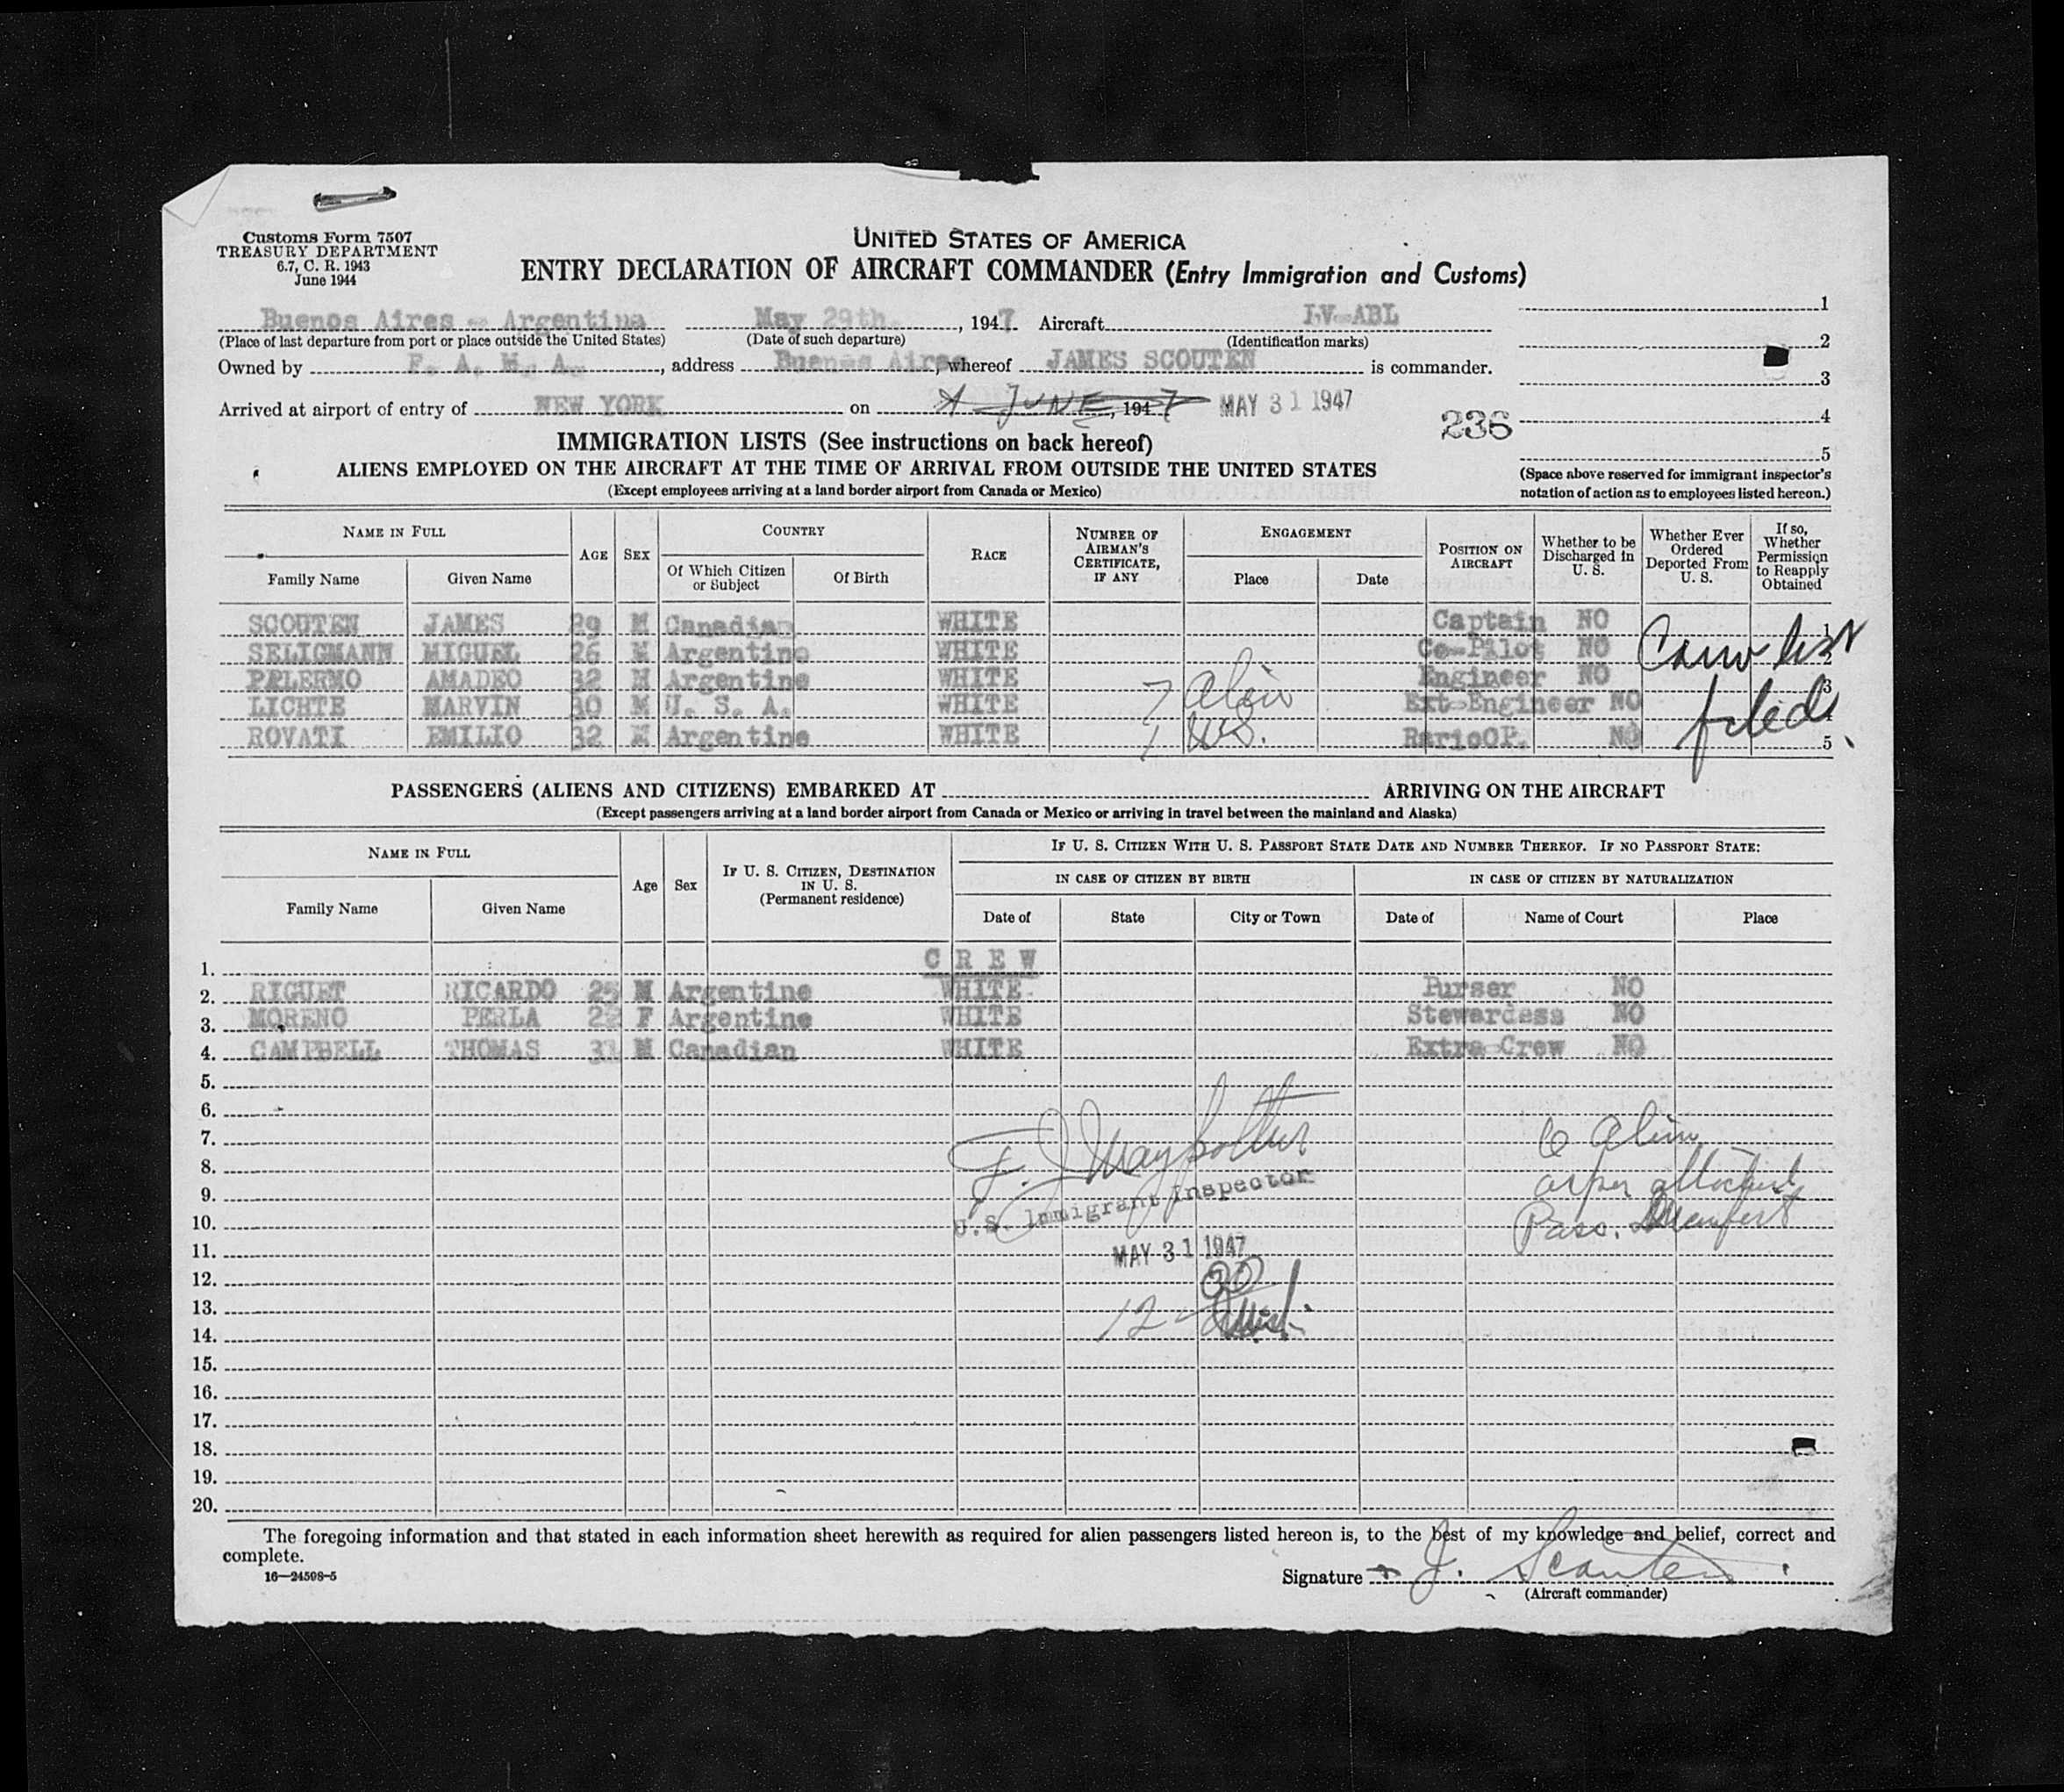 Customs Form 7507
TREASURY DEPARTMENT
6.7, C. R. 1943
June 1944
UNITED STATES OF AMERICA
ENTRY DECLARATION OF AIRCRAFT COMMANDER (Entry Immigration and Customs)
Buenos Aires - Argentina May 29th. , 1947 Aircraft LV-ABL
(Place of last departure from port or place outside the United States) (Date of such departure) (Identification marks)
Owned by F. A. M. A. , address Buenos Aires, whereof JAMES SCOUTEN is commander.
Arrived at airport of entry of NEW YORK on 1 JUNE, 1947 MAY 31 1947
236
1
2
3
4
5
(Space above reserved for immigrant inspector's
notation of action as to employees listed hereon.)
IMMIGRATION LISTS (See instructions on back hereof)
ALIENS EMPLOYED ON THE AIRCRAFT AT THE TIME OF ARRIVAL FROM OUTSIDE THE UNITED STATES
(Except employees arriving at a land border airport from Canada or Mexico)
NAME IN FULL AGE SEX COUNTRY RACE NUMBER OF AIRMAN'S CERTIFICATE, IF ANY ENGAGEMENT POSITION ON AIRCRAFT Whether to be Discharged in U. S. Whether Ever Ordered Deported From U. S. If so, Whether Permission to Reapply Obtained
Family Name Given Name Of Which Citizen or Subject Of Birth Place Date
SCOUTEN JAMES 29 M Canadian WHITE Captain NO 1
SELIGMANN MIGUEL 26 M Argentine WHITE Co-Pilot NO 2
PALERMO AMADEO 32 M Argentine WHITE Engineer NO 3
LICHTE MARVIN 30 M U. S. A. WHITE Ext-Engineer NO 4
ROVATI EMILIO 32 M Argentine WHITE RarioOP. NO 5
7 Alien
1 US.
list
filed
PASSENGERS (ALIENS AND CITIZENS) EMBARKED AT ARRIVING ON THE AIRCRAFT
(Except passengers arriving at a land border airport from Canada or Mexico or arriving in travel between the mainland and Alaska)
NAME IN FULL Age Sex IF U. S. CITIZEN, DESTINATION IN U. S. (Permanent residence) IF U. S. CITIZEN WITH U. S. PASSPORT STATE DATE AND NUMBER THEREOF. IF NO PASSPORT STATE:
IN CASE OF CITIZEN BY BIRTH IN CASE OF CITIZEN BY NATURALIZATION
Family Name Given Name Date of State City or Town Date of Name of Court Place
1. CREW
2. RIGUET RICARDO 25 M Argentine WHITE Purser NO
3. MORENO PERLA 22 F Argentine WHITE Stewardess NO
4. CAMPBELL THOMAS 31 M Canadian WHITE Extra Crew NO
5.
6.
7.
8.
9.
10.
11.
12.
13.
14.
15.
16.
17.
18.
19.
20.
U.S. Immigrant Inspector
MAY 31 1947
12
6 Alien
as per attached
Pass. Manifest
The foregoing information and that stated in each information sheet herewith as required for alien passengers listed hereon is, to the best of my knowledge and belief, correct and
complete.
16—24598-5
Signature J. Scouten
(Aircraft commander)